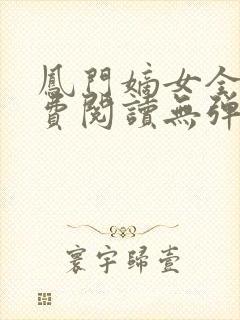 鳳門嫡女全
費閱讀無彈
寰宇歸壹